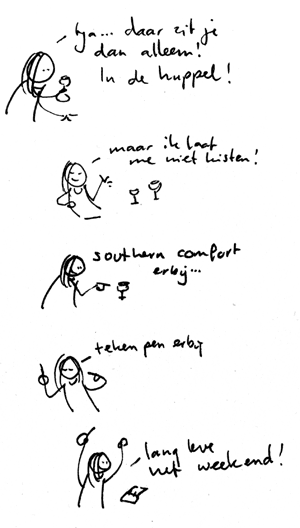 tja... daar zit je
dan alleen!
In de huppel!
maar ik laat
me niet kisten!
southern comfort
erbij...
teken pen erbij
lang leve
het weekend!